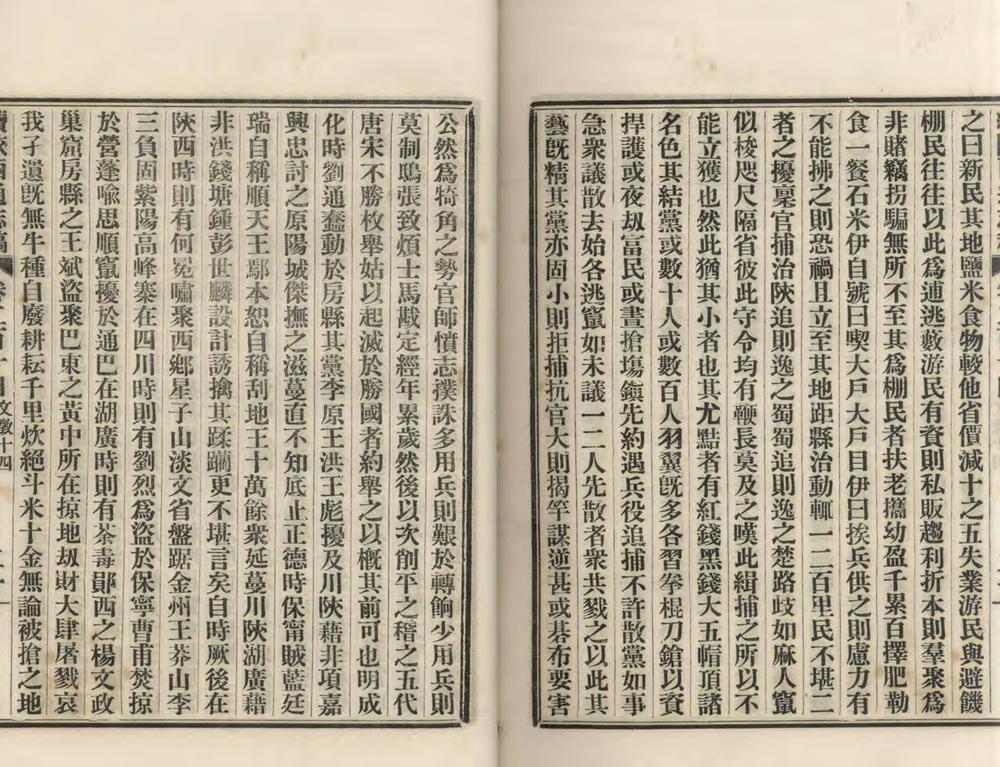 之曰新民其地鹽米食物較他省價減十之五失業游民與避饑
棚民往往以此為逋逃藪游民有資則私販趨利折本則羣聚為
非賭竊拐騙無所不至其為棚民者扶老攜幼盈千累百擇肥勒
食一餐石米伊自號曰喫大戶大戶目伊曰挨兵供之則慮力有
不能拂之則恐禍且立至其地距縣治動輒一二百里民不堪二
者之擾稟官捕治陝追則逸之蜀蜀追則逸之楚路歧如麻人竄
似梭咫尺隔省彼此守令均有鞭長莫及之嘆此緝捕之所以不
能立獲也然此猶其小者也其尤黠者有紅錢黑錢大五帽頂諸
名色其結黨或數十人或數百人羽翼既多各習拳棍刀鎗以資
捍護或夜劫富民或晝搶塲鎭先約遇兵役追捕不許散黨如事
急衆議散去始各逃竄如未議一二人先散者衆共戮之以此其
藝既精其黨亦固小則拒捕抗官大則揭竿謀逆甚或碁布要害
公然為犄角之勢官師憤志撲誅多用兵則艱於轉餉少用兵則
莫制鴟張致煩士馬戡定經年累歲然後以次削平之稽之五代
唐宋不勝枚舉姑以起滅於勝國者約舉之以概其前可也明成
化時劉通蠢動於房縣其黨李原王洪王彪擾及川陝藉非項嘉
興忠討之原陽城傑撫之滋蔓直不知底止正德時保甯賊藍廷
瑞自稱順天王鄢本恕自稱刮地王十萬餘衆延蔓川陝湖廣藉
非洪錢塘鍾彭世麟設計誘擒其蹂躪更不堪言矣自時厥後在
陝西時則有何冕嘯聚西鄉星子山淡文省盤踞金州王莽山李
三負固紫陽高峰寨在四川時則有劉烈為盜於保寧曹甫焚掠
於營蓬喩思順竄擾於通巴在湖廣時則有荼毒鄖西之楊文政
巢窟房縣之王斌盜聚巴東之黃中所在掠地劫財大肆屠戮哀
我孑遺既無牛種自廢耕耘千里炊絕斗米十金無論被搶之地